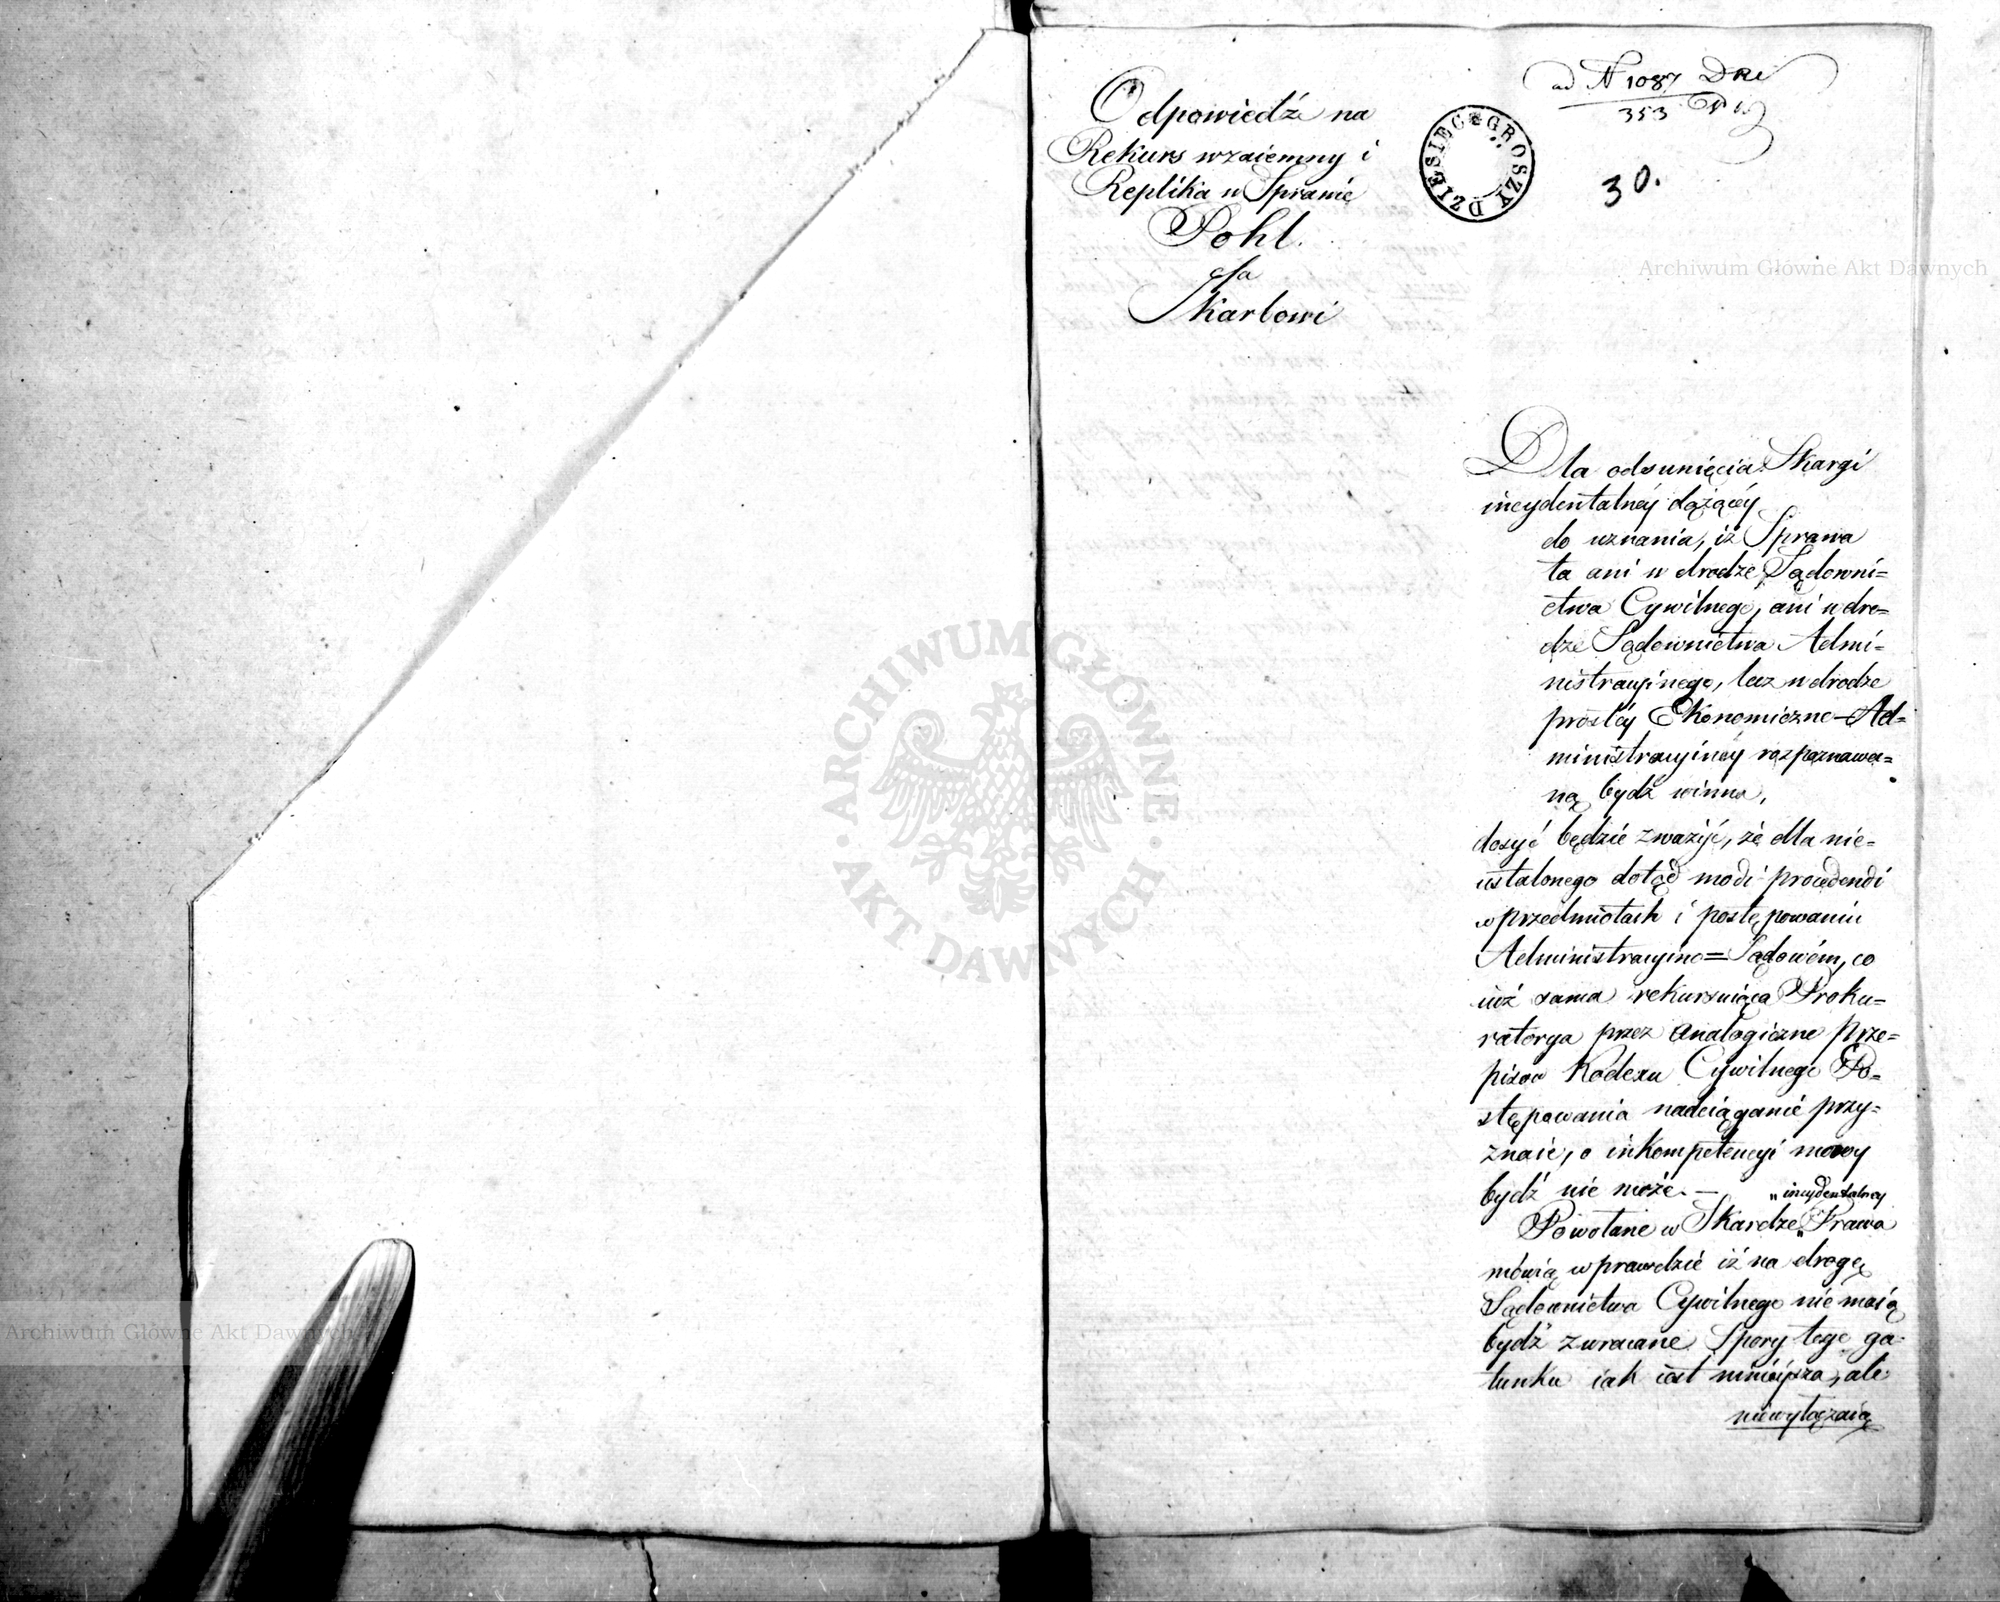 Odpowiedź na
Rekurs wzaiemny i
Replika w Sprawie
Pohl
c/sa
Skarbowi
ad N 1087
353
DZIESIĘC GROSZY
30.
Dla odsunięcia Skargi
incydentalnéy dążącéy
do uznania, iż Sprawa
ta ani w drodze Sądowni=
ctwa Cywilnego, ani w dro=
dze Sądownictwa Admi=
nistracyinego, lecz w drodze
prostéy Ekonomiczno-Ad=
ministracyinéy rozpoznawa=
ną bydź winna,
dosyć będzie zważyć, że dla nie=
ustalonego dotąd modi procedendi
w przedmiotach i postępowaniu
Administracyino=Sądowém, co
iuż sama rekursuiąca Proku=
ratorya przez analogiczne prze=
pisow Kodexu Cywilnego Po=
stępowania nadciąganie przy=
znaie, o inkompetencyi mowy
bydź nie może. —
Powołane w Skardze „incydentalnéy Prawa
mówią w prawdzie iż na drogę
Sądownictwa Cywilnego nie maią
bydź zwracane Spory tego ga=
tunku iak iest ninieysza, ale
niewyłączaią
Archiwum Główne Akt Dawnych
ARCHIWUM GŁÓWNE · AKT DAWNYCH ·
Archiwum Główne Akt Dawnych